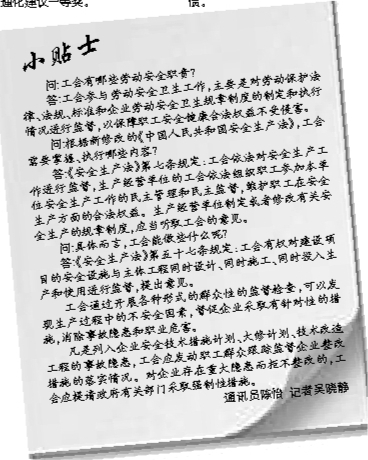 理化建议一等奖。
偿。
小贴士
问:工会有哪些劳动安全职责?
答:工会参与劳动安全卫生工作,主要是对劳动保护法
律、法规、标准和企业劳动安全卫生规章制度的制定和执行
情况进行监督,以保障职工安全健康合法权益不受侵害。
问:根据新修改的《中国人民共和国安全生产法》,工会
需要掌握、执行哪些内容?
答:《安全生产法》第七条规定:工会依法对安全生产工
作进行监督,生产经营单位的工会依法组织职工参加本单
位安全生产工作的民主管理和民主监督,维护职工在安全
生产方面的合法权益。生产经营单位制定或者修改有关安
全生产的规章制度,应当听取工会的意见。
问:具体而言,工会能做些什么呢?
答:《安全生产法》第五十七条规定:工会有权对建设项
目的安全设施与主体工程同时设计、同时施工、同时投入生
产和使用进行监督,提出意见。
工会通过开展各种形式的群众性的监督检查,可以发
现生产过程中的不安全因素,督促企业采取有针对性的措
施,消除事故隐患和职业危害。
凡是列入企业安全技术措施计划、大修计划、技术改造
工程的事故隐患,工会应发动职工群众跟踪监督企业整改
措施的落实情况。对企业存在重大隐患而拒不整改的,工
会应提请政府有关部门采取强制性措施。
通讯员陈怡 记者吴晓静